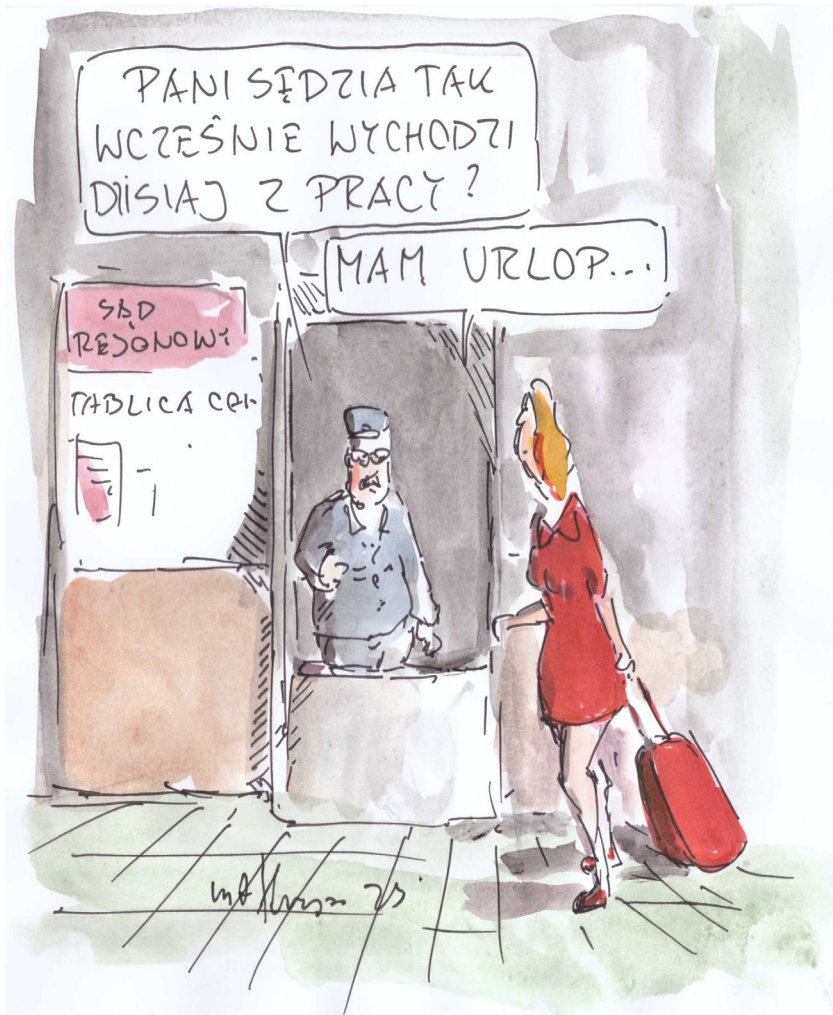 PANI SĘDZIA TAK
WCZEŚNIE WYCHODZI
DZISIAJ Z PRACY?
MAM URLOP...
SĄD
REJONOWY
TABLICA